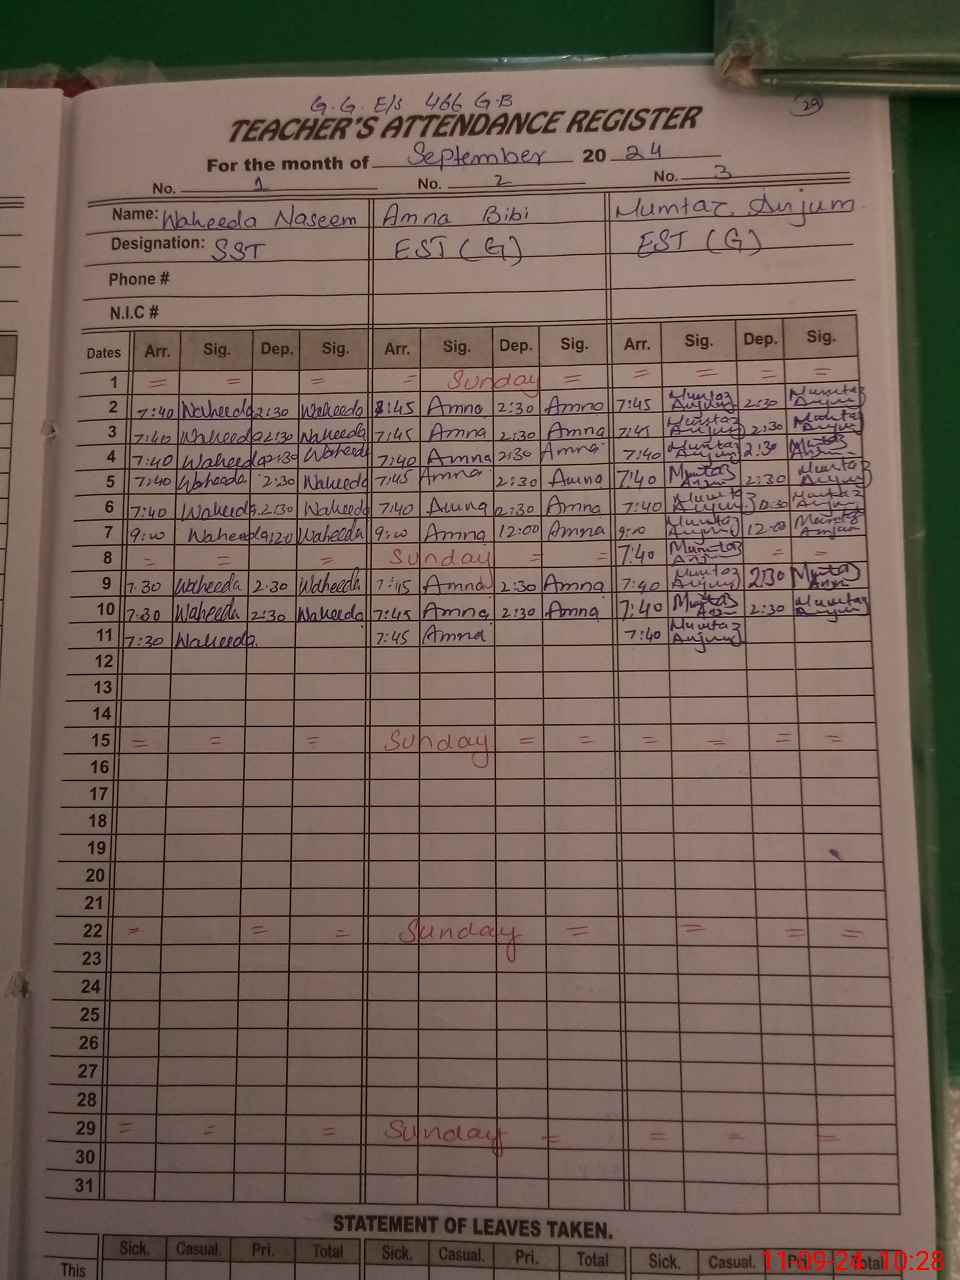 G.G. E/S 466 G.B
29
TEACHER'S ATTENDANCE REGISTER
For the month of September 20 24
No. 1 No. 2 No. 3
Name: Waheeda Naseem Amna Bibi Mumtaz Anjum
Designation: SST EST (G) EST (G)
Phone #
N.I.C #
Dates Arr. Sig. Dep. Sig. Arr. Sig. Dep. Sig. Arr. Sig. Dep. Sig.
1 = = = = Sunday = = = = =
2 7:40 Waheeda 2:30 Waheeda 8:45 Amna 2:30 Amna 7:45 Mumtaz Anjum 2:30 Mumtaz Anjum
3 7:40 Waheeda 2:30 Waheeda 7:45 Amna 2:30 Amna 7:45 Mumtaz Anjum 2:30 Mumtaz Anjum
4 7:40 Waheeda 2:30 Waheeda 7:40 Amna 2:30 Amna 7:40 Mumtaz Anjum 2:30 Mumtaz Anjum
5 7:40 Waheeda 2:30 Waheeda 7:45 Amna 2:30 Amna 7:40 Mumtaz Anjum 2:30 Mumtaz Anjum
6 7:40 Waheeda 2:30 Waheeda 7:40 Amna 2:30 Amna 7:40 Mumtaz Anjum 2:30 Mumtaz Anjum
7 9:00 Waheeda Waheeda 9:00 Amna 12:00 Amna 9:00 Mumtaz Anjum 12:00 Mumtaz Anjum
8 = = = Sunday = = 7:40 Mumtaz Anjum = =
9 7:30 Waheeda 2:30 Waheeda 7:45 Amna 2:30 Amna 7:40 Mumtaz Anjum 2:30 Mumtaz Anjum
10 7:30 Waheeda 2:30 Waheeda 7:45 Amna 2:30 Amna 7:40 Mumtaz Anjum 2:30 Mumtaz Anjum
11 7:30 Waheeda 7:45 Amna 7:40 Mumtaz Anjum
12
13
14
15 = = = Sunday = = = = = =
16
17
18
19
20
21
22 = = = Sunday = = = =
23
24
25
26
27
28
29 = = = Sunday = = = =
30
31
STATEMENT OF LEAVES TAKEN.
Sick. Casual. Pri. Total Sick. Casual. Pri. Total Sick. Casual. Pri. Total
This
11-09-24 10:28